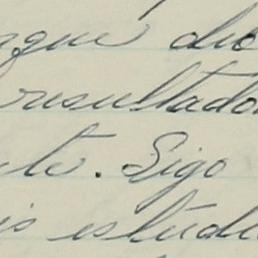 rque dio
resultado
te. Sigo
is estudi